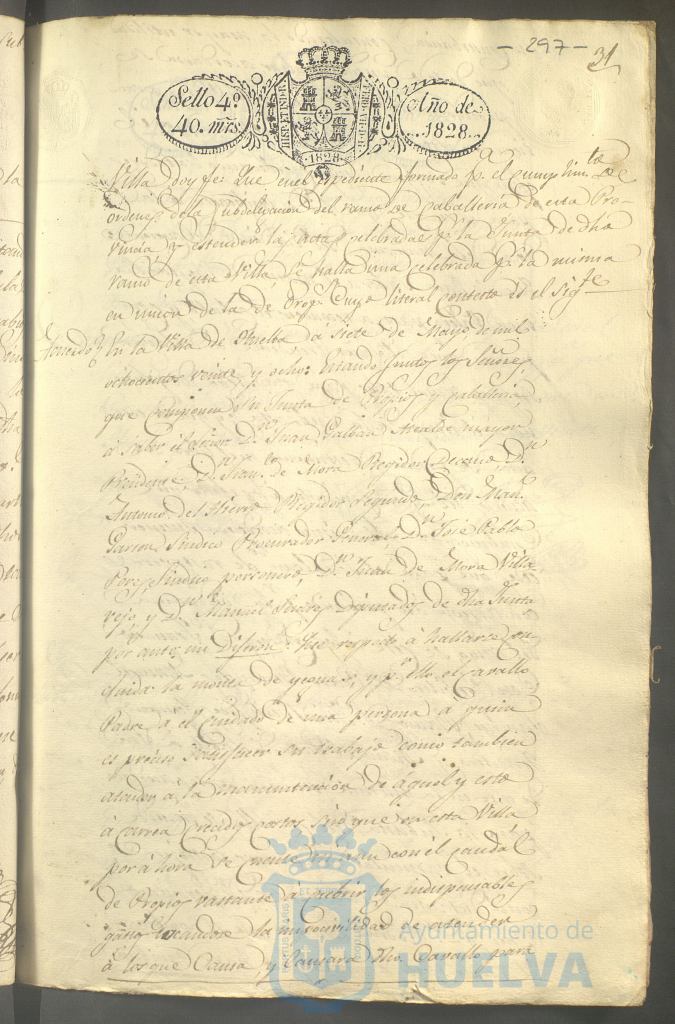 - 297 -
31
Sello 4º
40. mrs.
HISP. ET IND. R.
Año de
1828.
1828
Villa doy fe: Que en el expediente formado pª el cumplimto. de
ordenes de la subdelegacion del ramo de caballeria de esta Pro-
vincia y estender las actas celebradas pr. la Junta de dho
ramo de esta Villa se halla una celebrada pr. la misma
en union de la de Propˢ cuyo literal contexto es el sigte.
Acuerdo En la Villa de Huelva á siete de Mayo de mil
ochocientos veinte y ocho: Estando Juntos los Señores
que componen la Junta de Propios y caballeria
á saber el Señor Dn. Juan Galban Alcalde mayor
Presidente, Dn. Franco. de Mora Regidor Decano, Dn.
Antonio del Hierro Regidor Segundo, Don Manl.
Garcia Sindico Procurador General, Dn. José Pablo
Perez Sindico personero, Dn. Juan de Mora Villa
rejo, y Dn. Manuel Diputados de dha Junta
por ante mi Dijeron: Que respecto á hallarse con-
cluida la monta de yeguas, y pr. ello el cavallo
Padre á el cuidado de una persona a quien
es preciso satisfacer su trabajo como tambien
atender á la manutencion de aquel y este
á carrea crecidos costos sin que en esta Villa
por áhora se cuente con el caudal
de Propios vastante á cubrir los indispensables
gastos tocandose la imposivilidad de atender
á los que Causa y Causará dho. Cavallo para
Ayuntamiento de
HUELVA